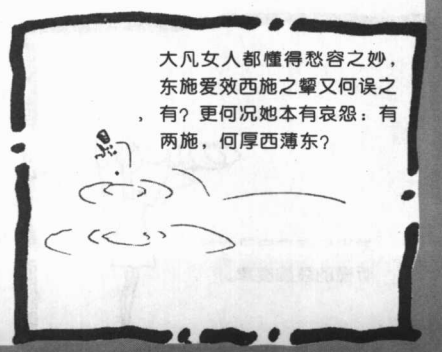 大凡女人都懂得愁容之妙，
东施爱效西施之颦又何误之
有？更何况她本有哀怨：有
两施，何厚西薄东？